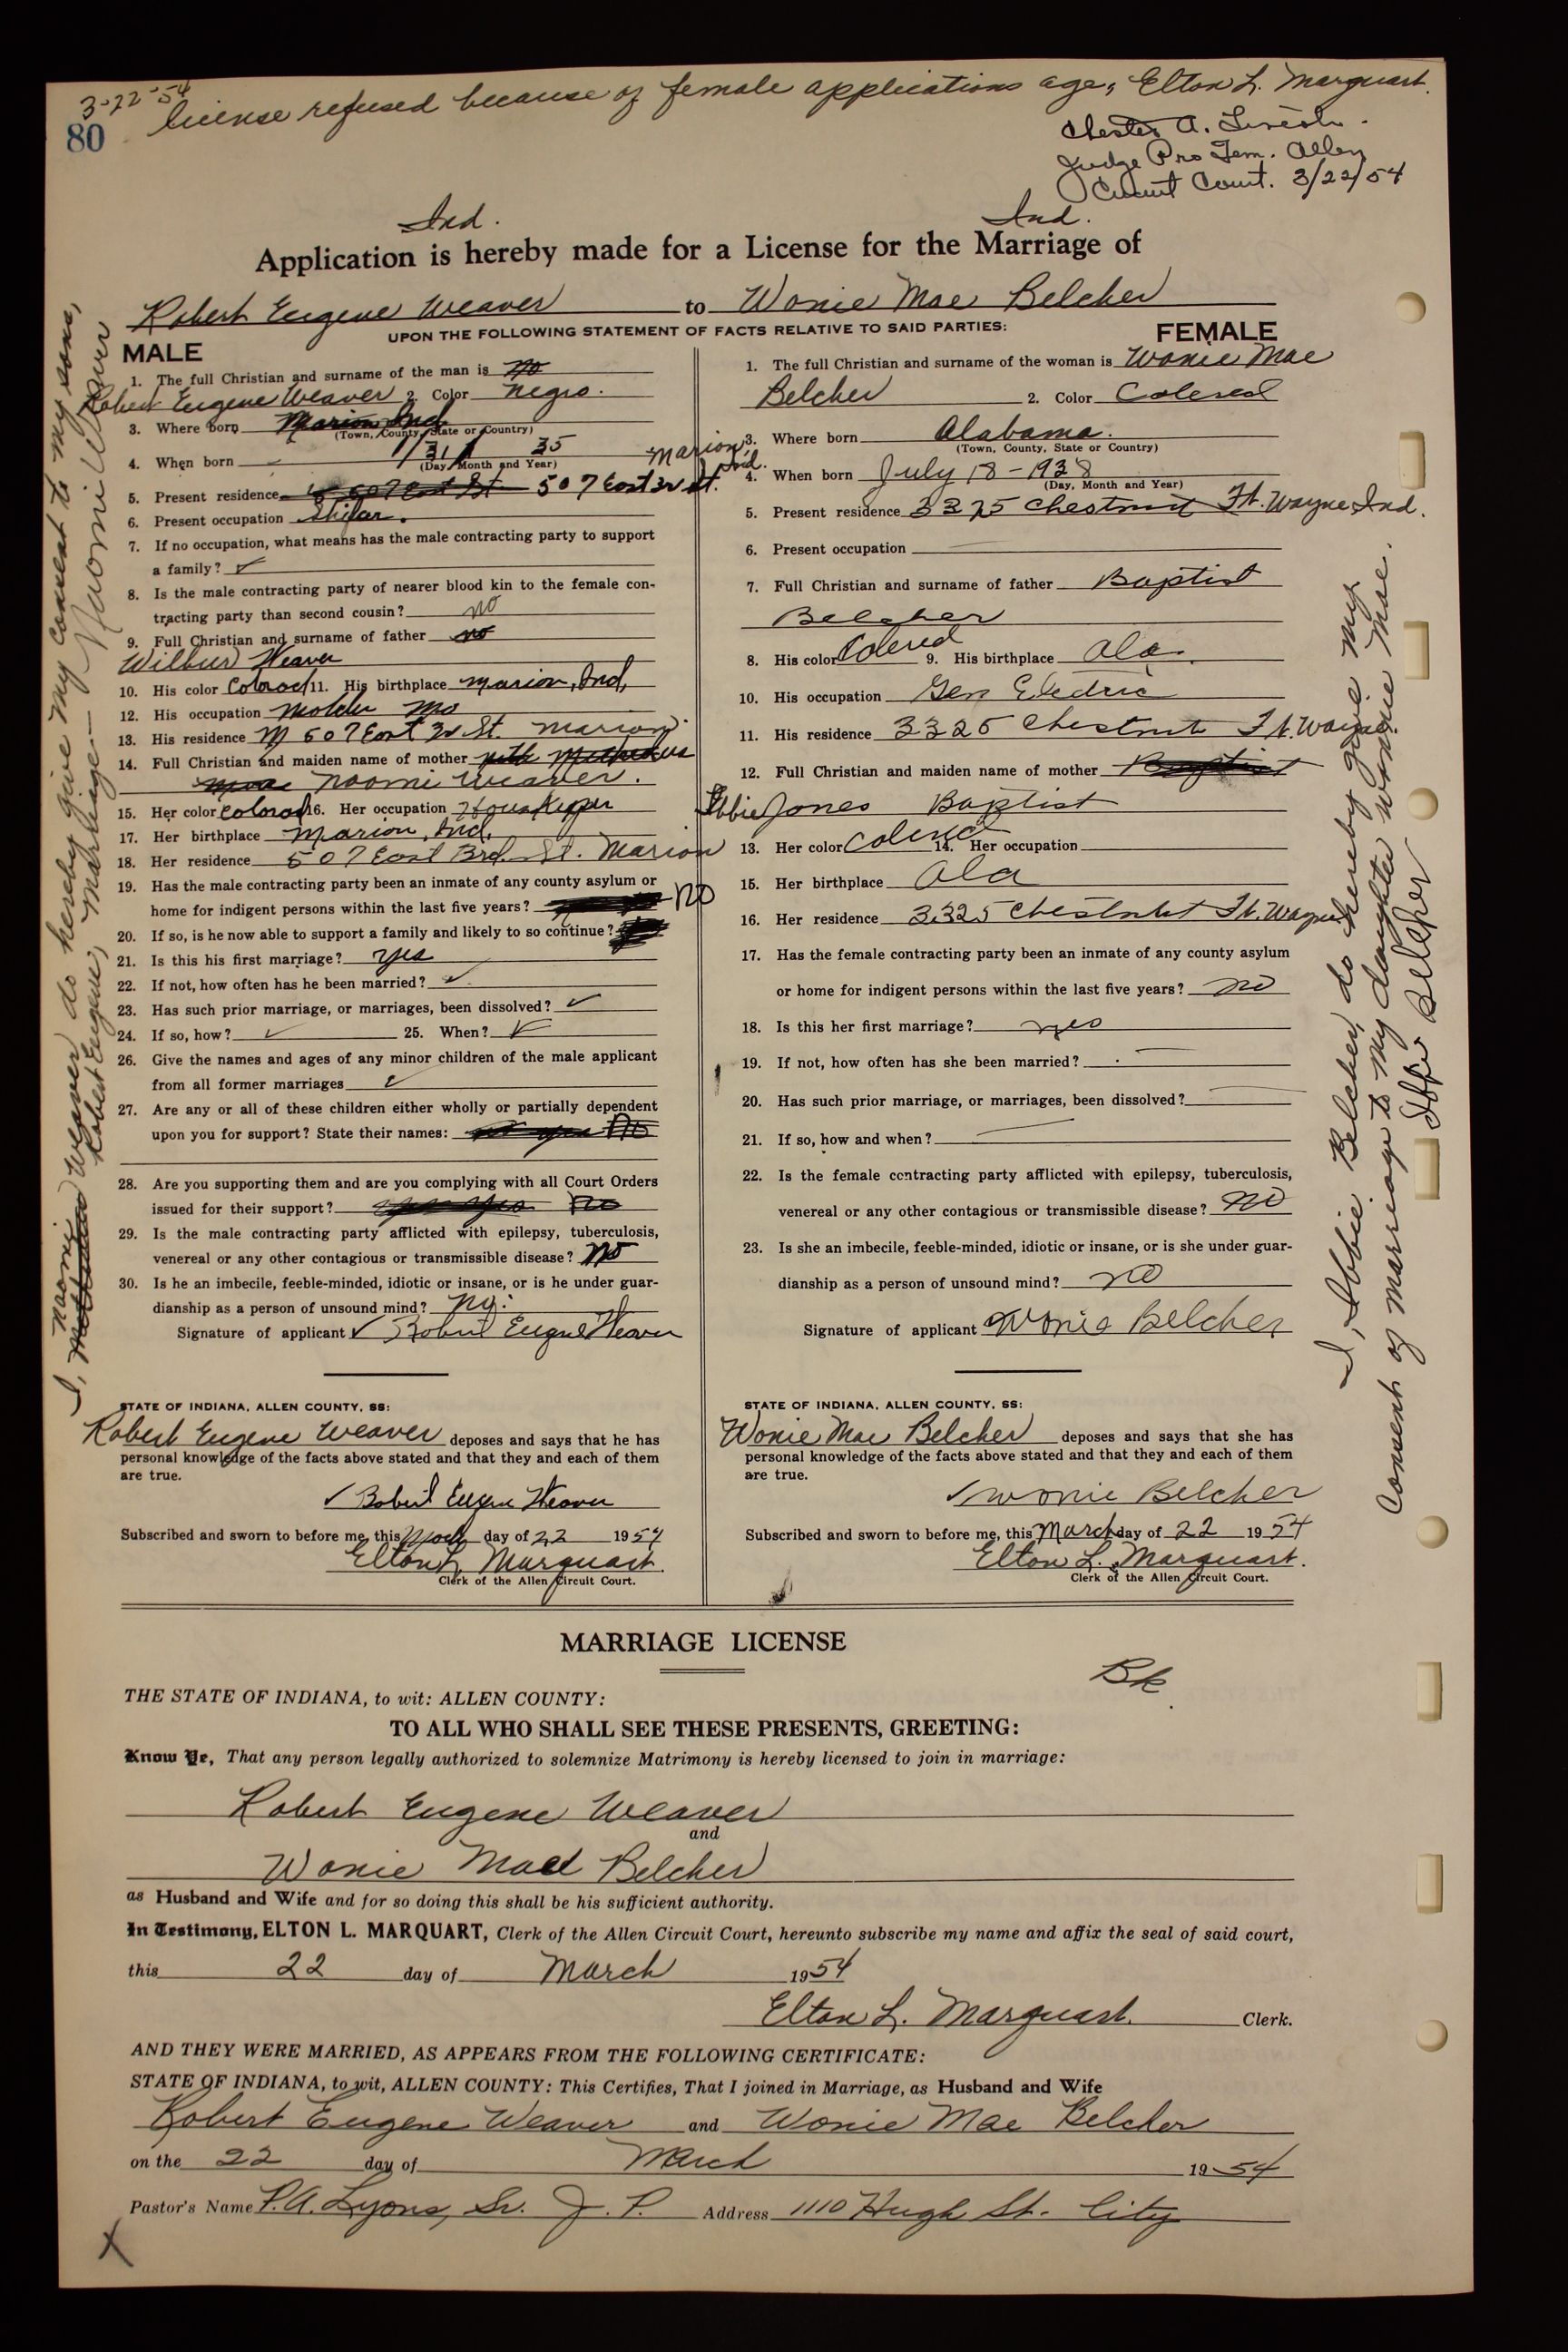 3-22-54
80
license refused because of female applications age, Elton L. Marquart.
Chester A.
Judge Pro Tem. Allen
Circuit Court. 3/22/54
Ind. Ind.
Application is hereby made for a License for the Marriage of
Robert Eugene Weaver to Wonie Mae Belcher
UPON THE FOLLOWING STATEMENT OF FACTS RELATIVE TO SAID PARTIES:
MALE
1. The full Christian and surname of the man is no
Robert Eugene Weaver 2. Color negro.
3. Where born Marion Ind
(Town, County, State or Country)
4. When born 1/31/35
(Day, Month and Year)
Marion, Ind.
5. Present residence 507 East St 507 East 3rd St.
6. Present occupation
7. If no occupation, what means has the male contracting party to support
a family? ✓
8. Is the male contracting party of nearer blood kin to the female con-
tracting party than second cousin? no
9. Full Christian and surname of father no
Wilbur Weaver
10. His color Colored 11. His birthplace Marion, Ind,
12. His occupation Molder
13. His residence 507 East 3rd St. Marion
14. Full Christian and maiden name of mother
Naomi Weaver.
15. Her color Colored 16. Her occupation
17. Her birthplace Marion, Ind.
18. Her residence 507 East 3rd. St. Marion
19. Has the male contracting party been an inmate of any county asylum or
home for indigent persons within the last five years? no
20. If so, is he now able to support a family and likely to so continue?
21. Is this his first marriage? yes
22. If not, how often has he been married? ✓
23. Has such prior marriage, or marriages, been dissolved? ✓
24. If so, how? ✓ 25. When? ✓
26. Give the names and ages of any minor children of the male applicant
from all former marriages ✓
27. Are any or all of these children either wholly or partially dependent
upon you for support? State their names: no
28. Are you supporting them and are you complying with all Court Orders
issued for their support? no
29. Is the male contracting party afflicted with epilepsy, tuberculosis,
venereal or any other contagious or transmissible disease? no
30. Is he an imbecile, feeble-minded, idiotic or insane, or is he under guar-
dianship as a person of unsound mind? no.
Signature of applicant ✓ Robert Eugene Weaver
STATE OF INDIANA, ALLEN COUNTY, SS:
Robert Eugene Weaver deposes and says that he has
personal knowledge of the facts above stated and that they and each of them
are true.
✓ Robert Eugene Weaver
Subscribed and sworn to before me, this March day of 22 1954
Elton L. Marquart.
Clerk of the Allen Circuit Court.
I, Naomi Weaver do hereby give my consent to my sons,
Robert Eugene, marriage — Naomi Weaver
FEMALE
1. The full Christian and surname of the woman is Wonie Mae
Belcher 2. Color Colored
3. Where born Alabama.
(Town, County, State or Country)
4. When born July 18-1938
(Day, Month and Year)
5. Present residence 3325 Chestnut Ft. Wayne Ind.
6. Present occupation
7. Full Christian and surname of father Baptist
Belcher
8. His color Colored 9. His birthplace Ala.
10. His occupation Gen Electric
11. His residence 3325 Chestnut Ft. Wayne.
12. Full Christian and maiden name of mother Baptist
Ibbie Jones Baptist
13. Her color Colored 14. Her occupation
15. Her birthplace Ala
16. Her residence 3325 Chestnut Ft. Wayne
17. Has the female contracting party been an inmate of any county asylum
or home for indigent persons within the last five years? no
18. Is this her first marriage? yes
19. If not, how often has she been married?
20. Has such prior marriage, or marriages, been dissolved?
21. If so, how and when?
22. Is the female contracting party afflicted with epilepsy, tuberculosis,
venereal or any other contagious or transmissible disease? no
23. Is she an imbecile, feeble-minded, idiotic or insane, or is she under guar-
dianship as a person of unsound mind? no
Signature of applicant Wonie Belcher
STATE OF INDIANA, ALLEN COUNTY, SS:
Wonie Mae Belcher deposes and says that she has
personal knowledge of the facts above stated and that they and each of them
are true.
✓ Wonie Belcher
Subscribed and sworn to before me, this March day of 22 1954
Elton L. Marquart.
Clerk of the Allen Circuit Court.
I, Ibbie Belcher, do hereby give my
Consent of marriage to my daughter Wonie Mae.
Ibbie Belcher
MARRIAGE LICENSE
Bk
THE STATE OF INDIANA, to wit: ALLEN COUNTY:
TO ALL WHO SHALL SEE THESE PRESENTS, GREETING:
Know Ye, That any person legally authorized to solemnize Matrimony is hereby licensed to join in marriage:
Robert Eugene Weaver
and
Wonie Mae Belcher
as Husband and Wife and for so doing this shall be his sufficient authority.
In Testimony, ELTON L. MARQUART, Clerk of the Allen Circuit Court, hereunto subscribe my name and affix the seal of said court,
this 22 day of March 1954
Elton L. Marquart. Clerk.
AND THEY WERE MARRIED, AS APPEARS FROM THE FOLLOWING CERTIFICATE:
STATE OF INDIANA, to wit, ALLEN COUNTY: This Certifies, That I joined in Marriage, as Husband and Wife
Robert Eugene Weaver and Wonie Mae Belcher
on the 22 day of March 1954
Pastor's Name P.A. Lyons, Sr. J. P. Address 1110 Hugh St. City
X